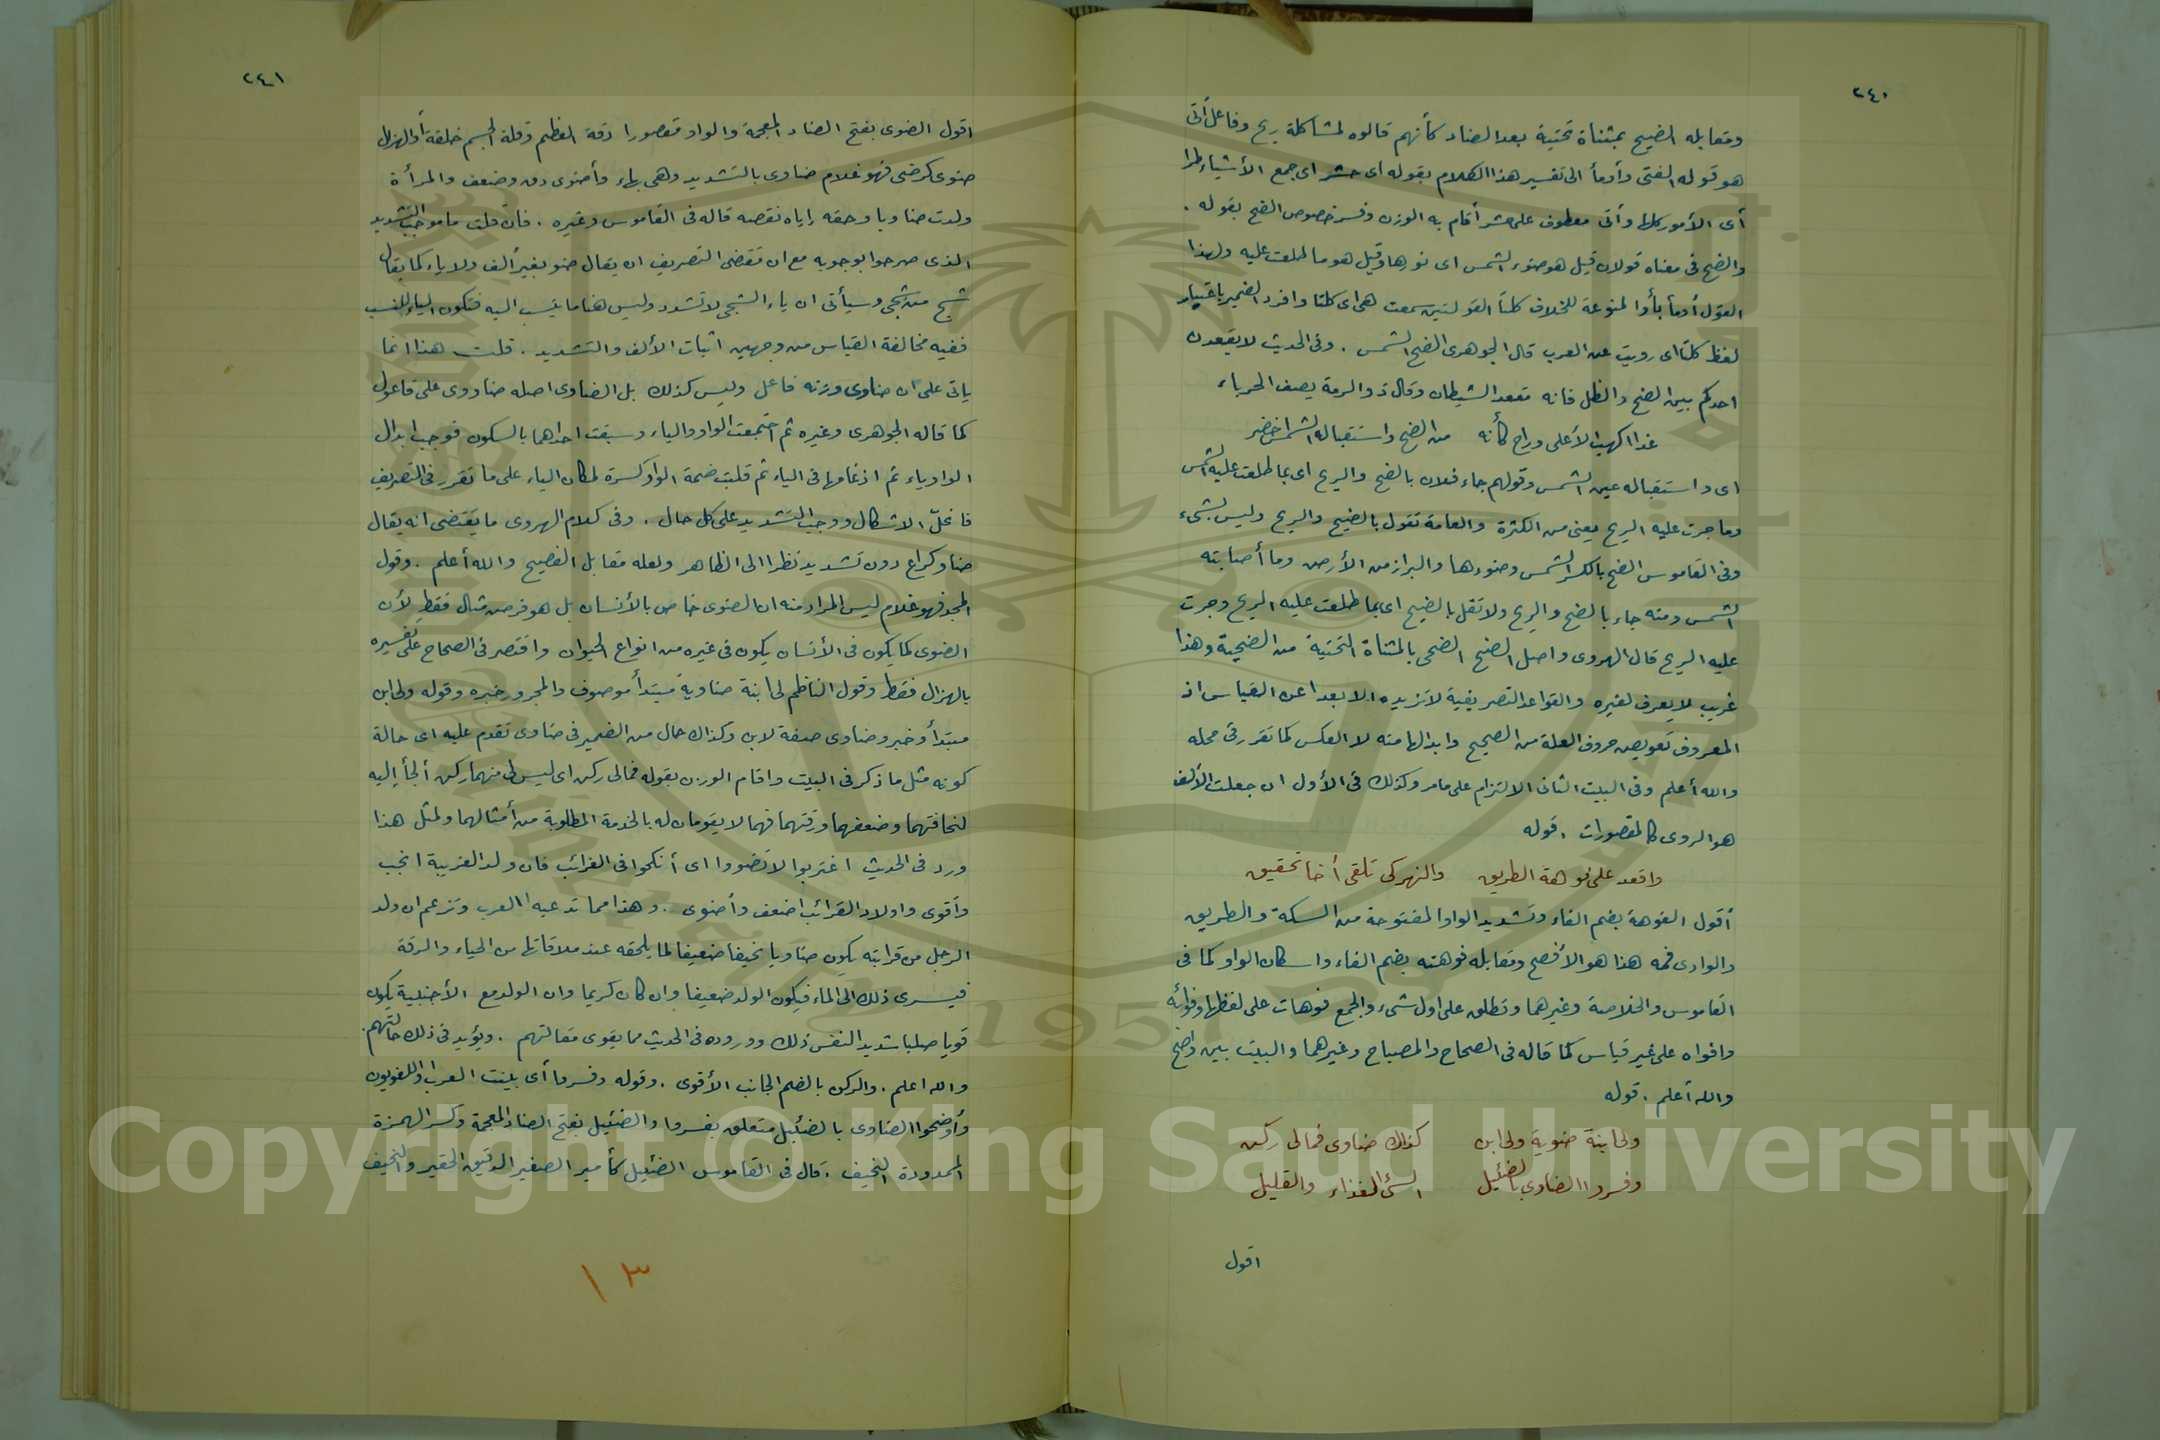 ٢٤٠
ومقابله الضيح بمثناة تحتية بعد الضاد كأنهم قالوه لمشاكلة ريح وفاعل أتى
هو قوله الفتى وأومأ الى تفسير هذا الكلام بقوله اى حشر اى جمع الأشياء طرا
أى الأمور كلها وأتى معطوف على حشر أقام به الوزن وفسر خصوص الضح بقوله .
والضح فى معناه قولان قيل هو ضوء الشمس اى نورها وقيل هو ما طلعت عليه ولهذا
القول أومأ بأو المنوعة للخلاف كلتا القولتين سمعت هى اى كلتا وافرد الضمير باعتبار
لفظ كلتا اى رويت عن العرب قال الجوهرى الضح الشمس . وفى الحديث لا يقعدن
احدكم بين الضح والظل فانه مقعد الشيطان وقال ذو الرمة يصف الحرباء
غدا اكهب الأعلى وراح كأنه من الضح واستقباله الشمس اخضر
اى واستقباله عين الشمس وقولهم جاء فلان بالضح والريح اى بما طلعت عليه الشمس
وما جرت عليه الريح يعنى من الكثرة والعامة تقول بالضيح والريح وليس بشىء
وفى القاموس الضح بالكسر الشمس وضوءها والبراز من الأرض وما أصابته
الشمس ومنه جاء بالضح والريح ولا تقل بالضيح اى بما طلعت عليه الريح وجرت
عليه الريح قال الهروى واصل الضح الضحى بالمثناة التحتية من الضحية وهذا
غريب لا يعرف لغيره والقواعد التصريفية لا تزيده الا بعدا عن القياس اذ
المعروف تعويض حروف العلة من الصحيح وابدالها منه لا العكس كما تقرر فى محله
والله أعلم وفى البيت الثانى الالتزام على مامر وكذلك فى الأول ان جعلت الألف
هو الروى كالمقصورات . قوله
واقعد على فوهة الطريق والنهر كى تلقى أخا تحقيق
أقول الفوهة بضم الفاء وتشديد الواو المفتوحة من السكة والطريق
والوادى فمه هذا هو الأفصح ومقابله فوهته بضم الفاء واسكان الواو كما فى
القاموس والخلاصة وغيرهما وتطلق على اول شىء والجمع فوهات على لفظها وفوائه
وافواه على غير قياس كما قاله فى الصحاح والمصباح وغيرهما والبيت بين واضح
والله أعلم . قوله
ولى ابنة ضاوية ولى ابن كذلك ضاوى فمالى ركن
وفسروا الضاوى بالضئيل السئ الغذاء والقليل
اقول
٢٤١
اقول الضوى بفتح الضاد المعجمة والواو مقصورا دقة العظم وقلة الجسم خلقة أو الهزال
ضوى كرضى فهو غلام ضاوى بالتشديد وهى بهاء وأضوى دق وضعف والمرأة
ولدت ضاويا وحقه إياه نقصه قاله فى القاموس وغيره . فان قلت ما موجب التشديد
الذى صرحوا بوجوبه مع ان مقتضى التصريف ان يقال ضو بغير ألف ولا ياء كما يقال
شج من شجى وسيأتى ان ياء الشجى لا تشدد وليس هنا ما ينسب اليه فتكون الياء للنسب
ففيه مخالفة القياس من وجهين اثبات الألف والتشديد . قلت هذا انما
يأتى على ان ضاوى وزنه فاعل وليس كذلك بل الضاوى اصله ضاووى على فاعول
كما قاله الجوهرى وغيره ثم اجتمعت الواو والياء وسبقت احداهما بالسكون فوجب ابدال
الواو ياء ثم ادغامها فى الياء ثم قلبت ضمة الواو كسرة لمكان الياء على ما تقرر فى التصريف
فانحل الاشكال ووجب التشديد على كل حال . وفى كلام الهروى ما يقتضى انه يقال
ضاو كراع دون تشديد نظرا الى الظاهر ولعله مقابل الفصيح والله أعلم . وقول
المجد فهو غلام ليس المراد منه ان الضوى خاص بالأنسان بل هو فرض مثال فقط لأن
الضوى كما يكون فى الأنسان يكون فى غيره من انواع الحيوان واقتصر فى الصحاح على تفسيره
بالهزال فقط وقول الناظم لى ابنة ضاوية مبتدأ موصوف والمجرور خبره وقوله ولى ابن
مبتدأ وخبر وضاوى صفة لابن وكذاك حال من الضمير فى ضاوى تقدم عليه اى حالة
كونه مثل ما ذكر فى البيت واقام الوزن بقوله فمالى ركن اى ليس لى منهما ركن ألجأ إليه
لنحافتهما وضعفهما ورقتهما فهما لا يقومان له بالخدمة المطلوبة من أمثالهما ولمثل هذا
ورد فى الحديث اغتربوا لا تضووا اى أنكحوا فى الغرائب فان ولد الغريبة انجب
وأقوى واولاد القرائب اضعف وأضوى . وهذا مما تدعيه العرب وتزعم ان ولد
الرجل من قرابته يكون ضاويا نحيفا ضعيفا لما يلحقه عند ملاقاتها من الحياء والرقة
فيسرى ذلك الى الماء فيكون الولد ضعيفا وان كان كريما وان الولد مع الأجنبية يكون
قويا صلبا شديد النفس ذلك ووروده فى الحديث مما يقوى مقالتهم . ويؤيد فى ذلك حالتهم .
والله اعلم . والركن بالضم الجانب الأقوى . وقوله وفسروا أى بينت العرب واللغويون
وأوضحوا الضاوى بالضئيل متعلق بفسروا والضئيل بفتح الضاد المعجمة وكسر الهمزة
الممدودة النحيف . قال فى القاموس الضئيل كأمير الصغير الدقيق الحقير والنحيف
١٣
Copyright © King Saud University
1957